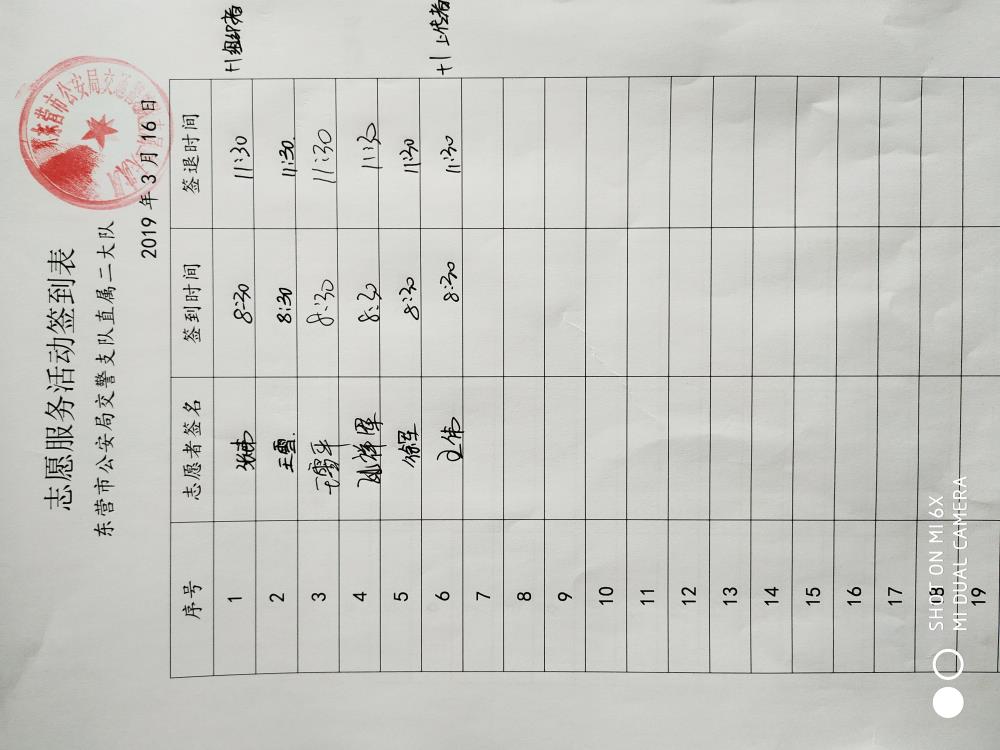 志愿服务活动签到表
东营市公安局交警支队直属二大队
2019 年 3 月 16 日
序号 志愿者签名 签到时间 签退时间
1 8:30 11:30 +1组织者
2 王雪. 8:30 11:30.
3 8:30 11:30
4 8:30 11:30
5 徐军 8:30 11:30
6 王伟 8:30 11:30 +1 上传者
7
8
9
10
11
12
13
14
15
16
17
18
19
东营市公安局交通
SHOT ON MI 6X
MI DUAL CAMERA